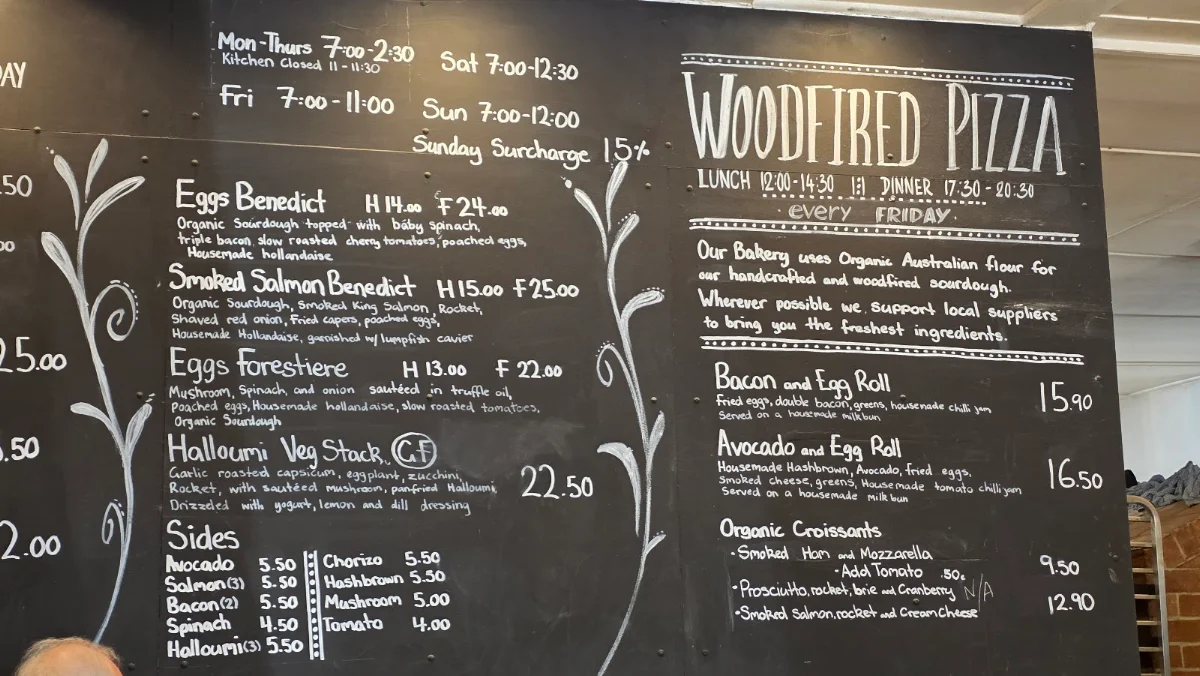 AY
.50
25.00
.50
2.00
Mon-Thurs 7:00-2:30
Kitchen Closed 11-11:30
Sat 7:00-12:30
Fri 7:00-11:00
Sun 7:00-12:00
Sunday Surcharge 15%
Eggs Benedict H 14.00 F 24.00
Organic Sourdough topped with baby spinach,
triple bacon, slow roasted cherry tomatoes, poached eggs,
Housemade hollandaise
Smoked Salmon Benedict H 15.00 F 25.00
Organic Sourdough, Smoked King Salmon, Rocket,
Shaved red onion, Fried capers, poached eggs,
Housemade Hollandaise, garnished w/ lumpfish cavier
Eggs Forestiere H 13.00 F 22.00
Mushroom, Spinach, and onion sautéed in truffle oil,
Poached eggs, Housemade hollandaise, slow roasted tomatoes,
Organic Sourdough
Halloumi Veg Stack GF
Garlic roasted capsicum, eggplant, zucchini,
Rocket, with sautéed Mushroom, panfried Halloumi, 22.50
Drizzled with yogurt, lemon and dill dressing
Sides
Avocado 5.50 Chorizo 5.50
Salmon(3) 5.50 Hashbrown 5.50
Bacon(2) 5.50 Mushroom 5.00
Spinach 4.50 Tomato 4.00
Halloumi(3) 5.50
WOODFIRED PIZZA
LUNCH 12:00-14:30 DINNER 17:30-20:30
every FRIDAY
Our Bakery uses Organic Australian flour for
our handcrafted and woodfired sourdough.
Wherever possible we support local suppliers
to bring you the freshest ingredients.
Bacon and Egg Roll 15.90
Fried eggs, double bacon, greens, housemade chilli jam
Served on a housemade milk bun
Avocado and Egg Roll 16.50
Housemade Hashbrown, Avocado, fried eggs,
Smoked cheese, greens, Housemade tomato chilli jam
Served on a housemade milk bun
Organic Croissants
• Smoked Ham and Mozzarella 9.50
• Add Tomato .50c
• Prosciutto, rocket, brie and Cranberry N/A
• Smoked Salmon, rocket and Cream Cheese 12.90